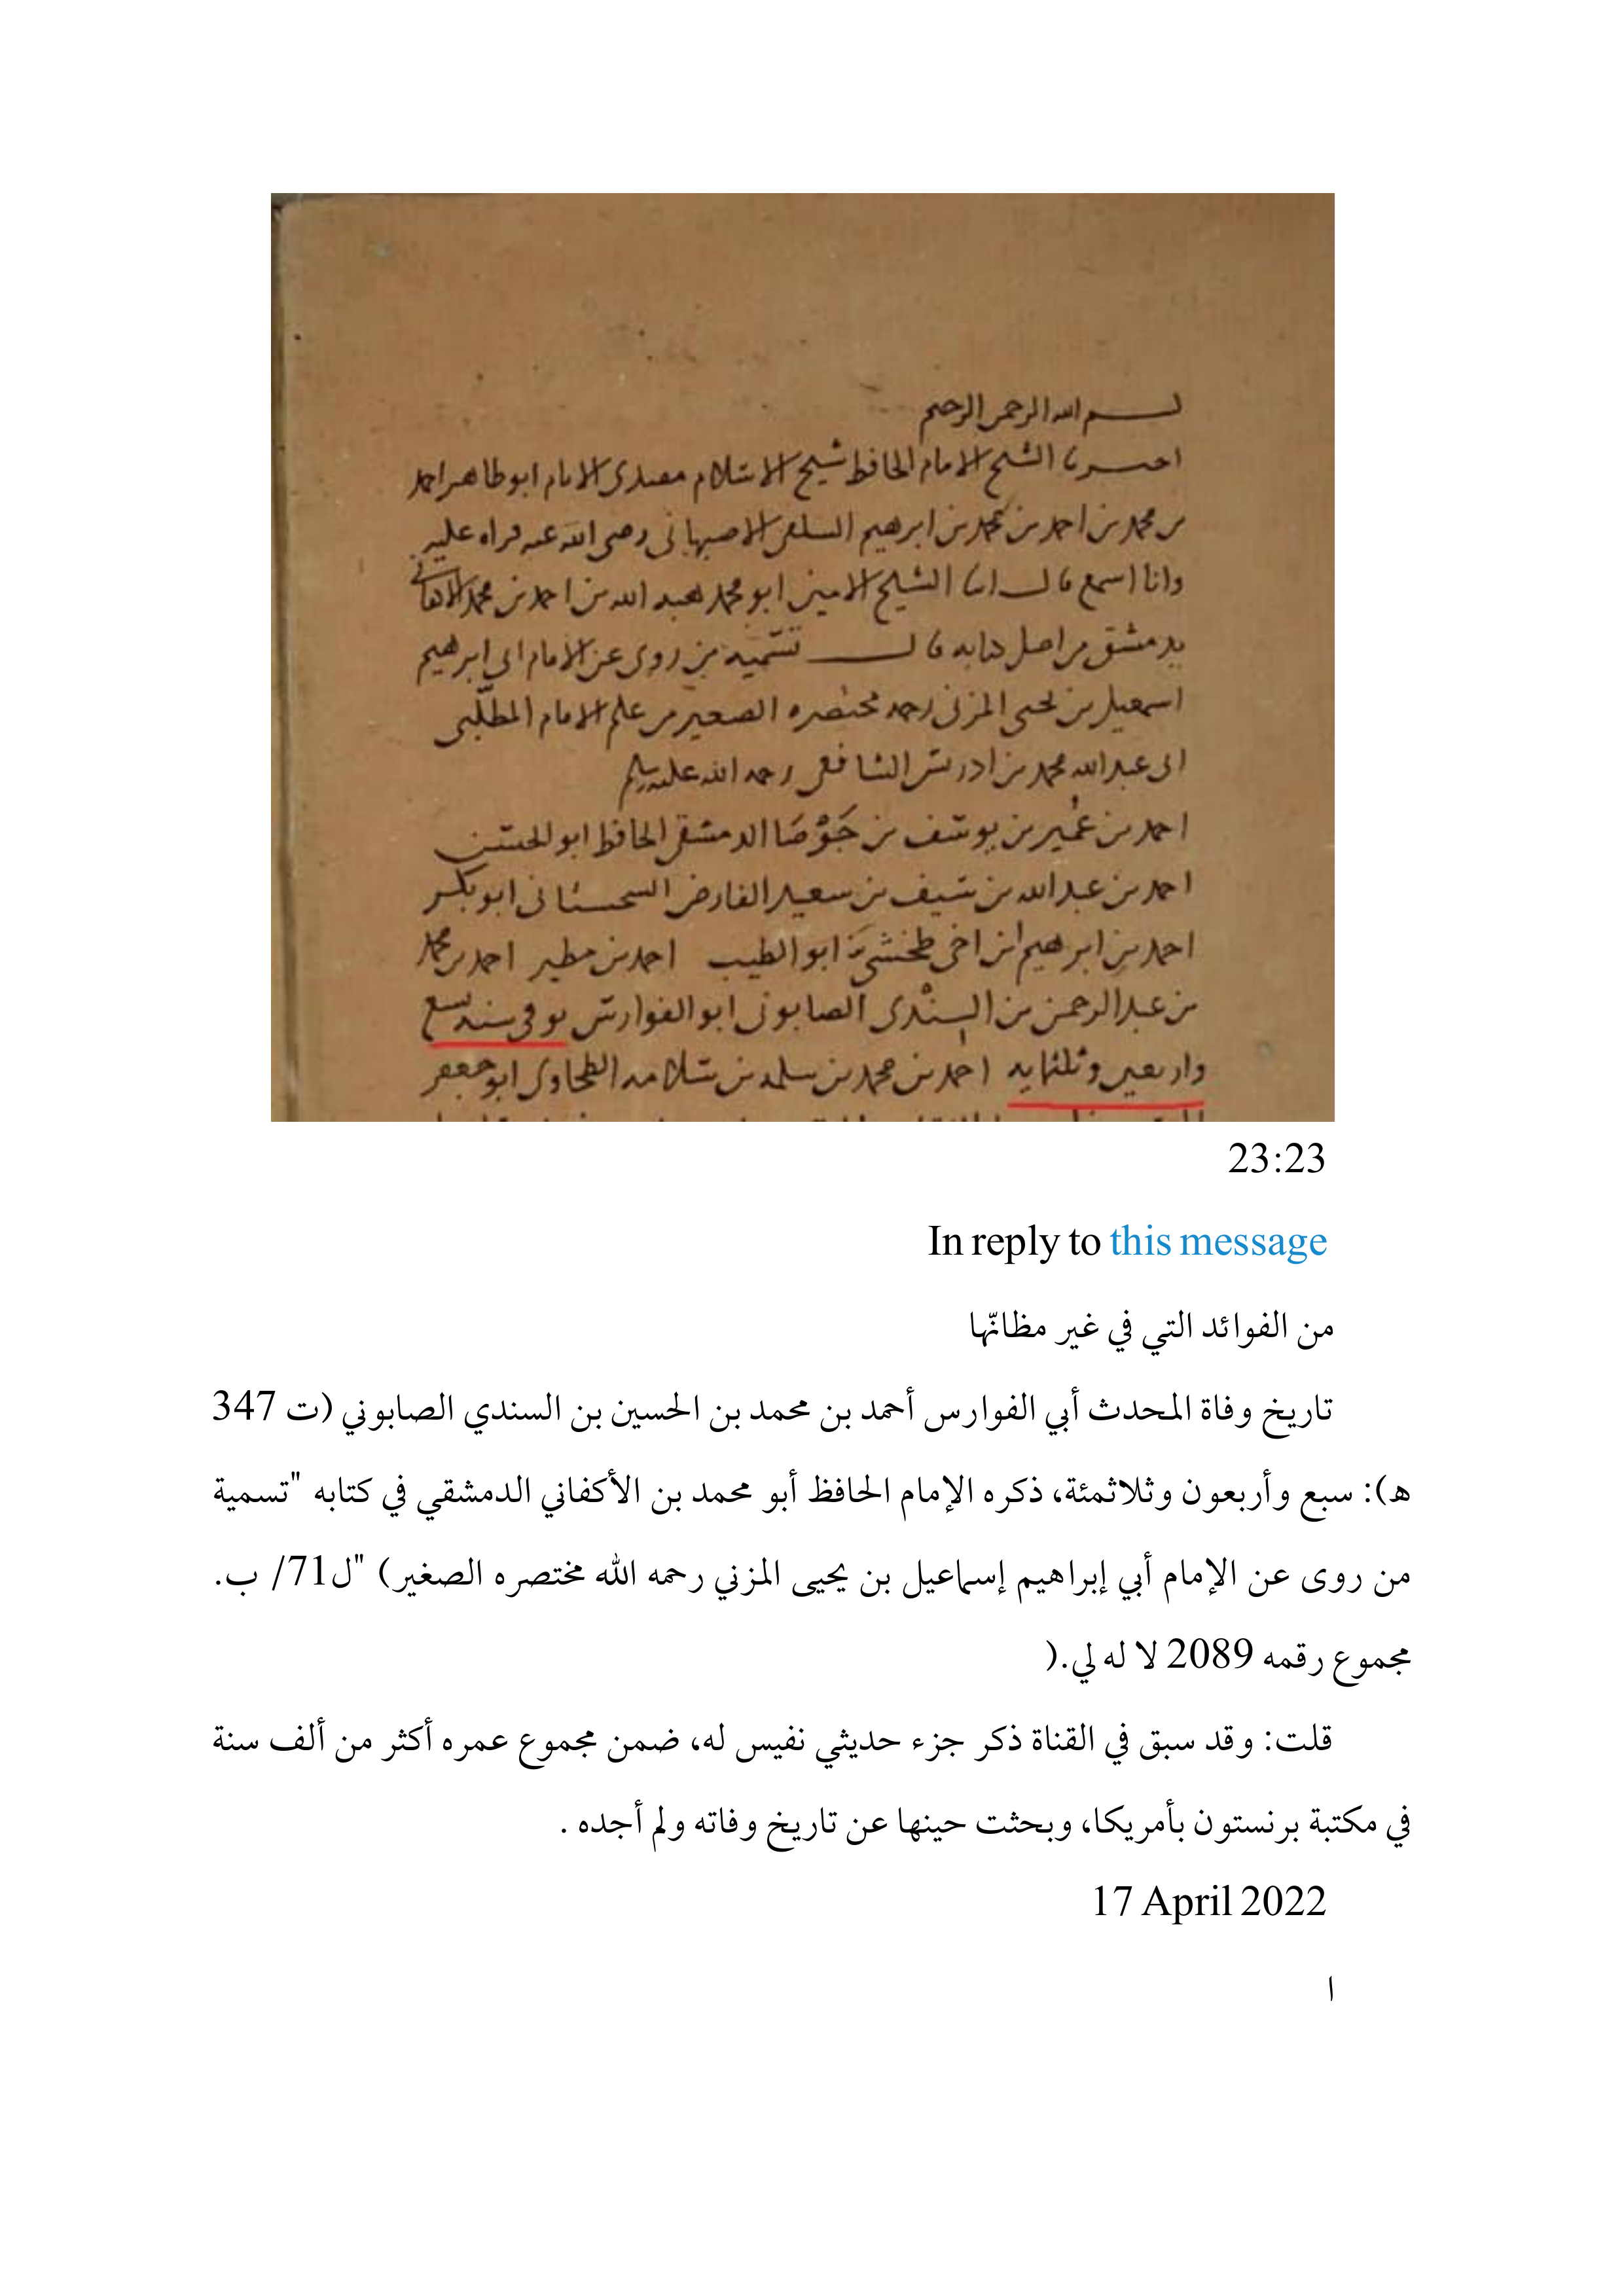 بسم الله الرحمن الرحيم
اخبرنا الشيخ الامام الحافظ شيخ الاسلام مقتدى الانام ابو طاهر احمد
بن محمد بن احمد بن محمد بن ابرهيم السلفى الاصبهانى رضى الله عنه قراه عليه
وانا اسمع قال انا الشيخ الامين ابو محمد هبه الله بن احمد بن محمد الاكفانى
بدمشق من اصل كتابه قال تسمية من روى عن الامام ابى ابرهيم
اسمعيل بن يحيى المزنى رحمه مختصره الصغير من علم الامام المطلّبى
ابى عبد الله محمد بن ادريس الشافعى رحمه الله عليه
احمد بن عُمير بن يوسف بن جَوْصَا الدمشقى الحافظ ابو الحسن
احمد بن عبد الله بن سيف بن سعيد الفارض السجستانى ابو بكر
احمد بن ابرهيم ابن اخى ابو الطيب احمد بن مطير احمد بن محمد
بن عبد الرحمن بن السِنْدى الصابونى ابو الفوارس توفى سنه سبع
واربعين وثلثمايه احمد بن محمد بن سلمه بن سلامه الطحاوى ابو جعفر
23:23
In reply to this message
من الفوائد التي في غير مظانّها
تاريخ وفاة المحدث أبي الفوارس أحمد بن محمد بن الحسين بن السندي الصابوني (ت 347
ه): سبع وأربعون وثلاثمئة، ذكره الإمام الحافظ أبو محمد بن الأكفاني الدمشقي في كتابه "تسمية
من روى عن الإمام أبي إبراهيم إسماعيل بن يحيى المزني رحمه الله مختصره الصغير) "ل71/ ب.
مجموع رقمه 2089 لا له لي.(
قلت: وقد سبق في القناة ذكر جزء حديثي نفيس له، ضمن مجموع عمره أكثر من ألف سنة
في مكتبة برنستون بأمريكا، وبحثت حينها عن تاريخ وفاته ولم أجده .
17 April 2022
ا